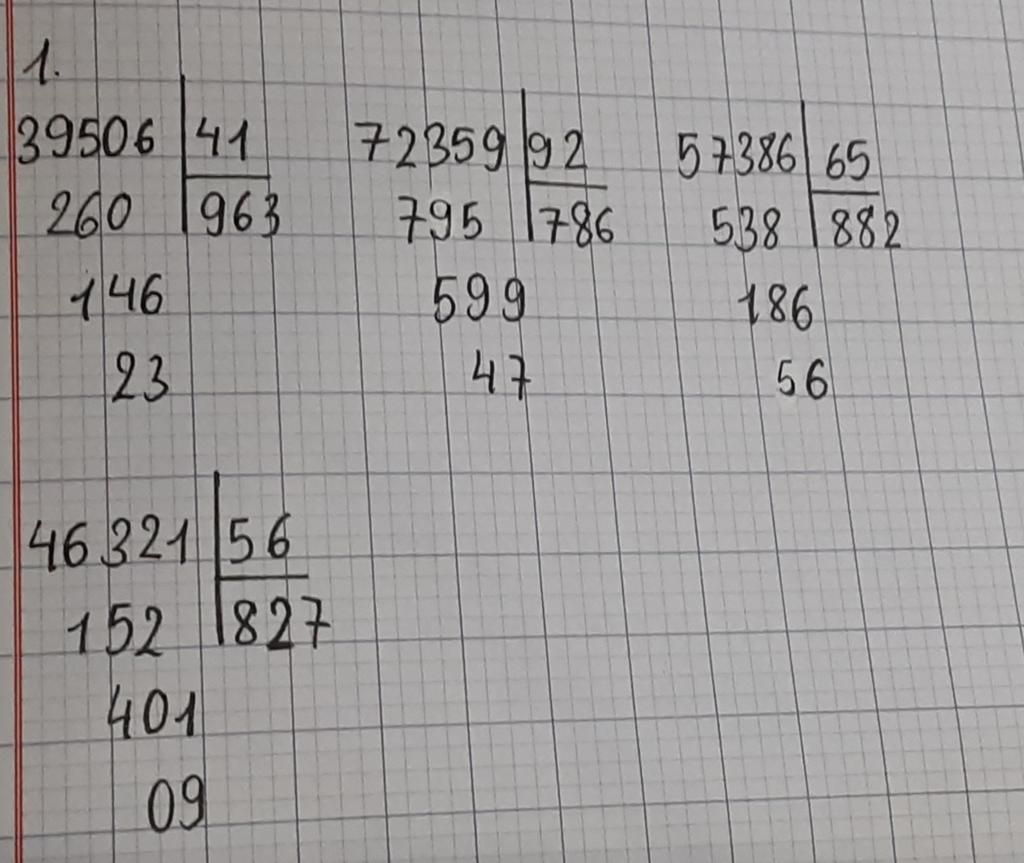 1.
39506 41 72359 92 57386 65
260 963 795 786 538 882
146 599 186
23 47 56
46321 56
152 827
401
09